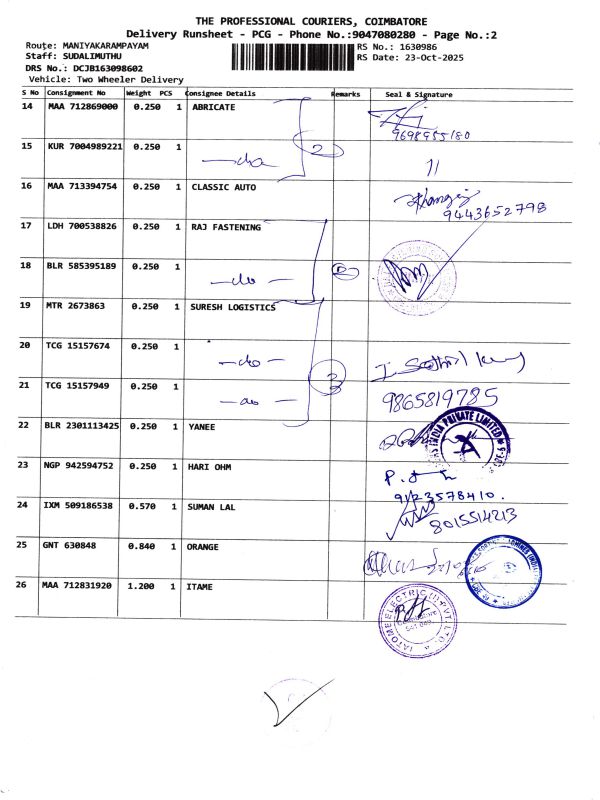 THE PROFESSIONAL COURIERS, COIMBATORE
Delivery Runsheet - PCG - Phone No.:9047080280 - Page No.:2
Route: MANIYAKARAMPAYAM RS No.: 1630986
Staff: SUDALIMUTHU RS Date: 23-Oct-2025
DRS No.: DCJB163098602
Vehicle: Two Wheeler Delivery
S No Consignment No Weight PCS Consignee Details Remarks Seal & Signature
14 MAA 712869000 0.250 1 ABRICATE
9698955180
15 KUR 7004989221 0.250 1 —do— 2 11
16 MAA 713394754 0.250 1 CLASSIC AUTO
9443652798
17 LDH 700538826 0.250 1 RAJ FASTENING
18 BLR 585395189 0.250 1 —do— 2
19 MTR 2673863 0.250 1 SURESH LOGISTICS
20 TCG 15157674 0.250 1 —do— 3
21 TCG 15157949 0.250 1 —do— 9865819785
22 BLR 2301113425 0.250 1 YANEE
INDIA PRIVATE LIMITED
23 NGP 942594752 0.250 1 HARI OHM
9123578410.
24 IXM 509186538 0.570 1 SUMAN LAL 8015514213
25 GNT 630848 0.840 1 ORANGE
26 MAA 712831920 1.200 1 ITAME